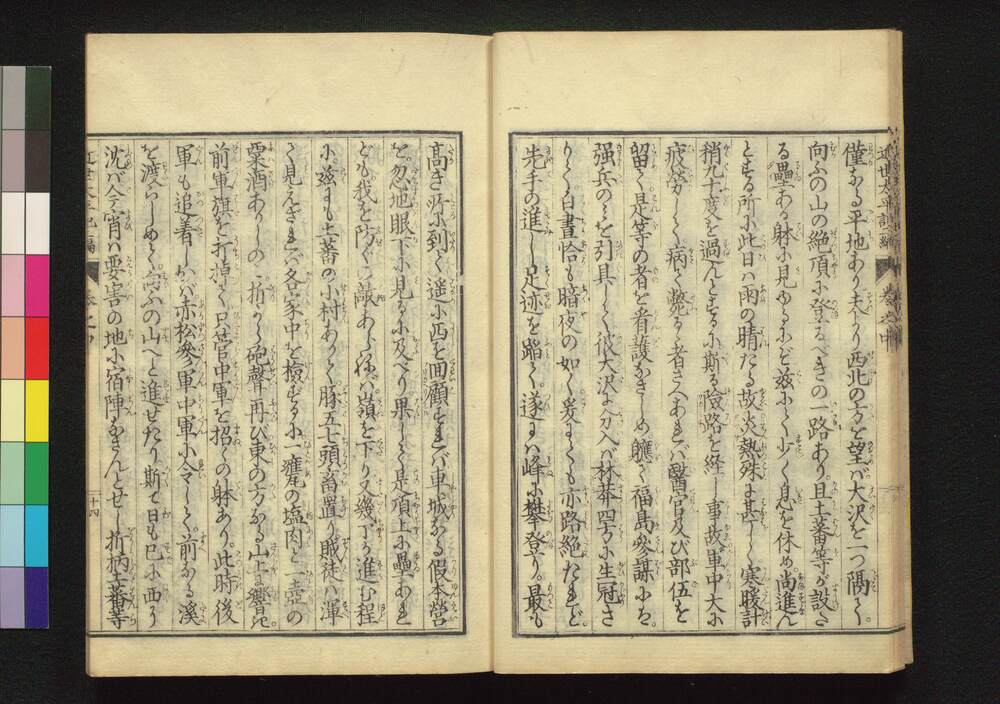 近世太平記二編 卷之中
僅なる平地あり夫より西北の方を望バ大沢を一つ隔て
向ふの山の絶頂に登るべきの一路あり且土蕃等が設た
る壘ある躰に見ゆるにぞ茲にて少く息を休め尚進ん
とする所に此日ハ雨の晴たる故炎熱殊に甚しく寒暖計
稍九十度を過んとするに斯る險路を経し事故軍中大に
疲労して病て斃るゝ者さへあれバ醫官及び部伍を
留て是等の者を看護なさしめ軈て福島參謀にハ
强兵のミを引具して彼大沢に分入バ林莽四方に生冠さ
りて白晝恰も暗夜の如く爰にても亦路絶たれど
先手の進し足迹を踏て遂にハ峰に攀登り最も
高き所に到て遥に西を回顧すれバ車城なる假本營
を忽地眼下に見るに及べり果して是頂上に壘あれ
ども我を防ぐの敵あらねバ嶺を下り又幾丁か進む程
に茲にも土蕃の小村ありて豚五七頭畜置り賊徒ハ渾
て見えざれバ各家中を檢するに一甕の塩肉と一壺の
粟酒ありしのミ折から砲聲再び東の方なる山上に響き
前軍旗を打掉て只菅中軍を招くの躰あり此時後
軍も追着しかバ赤松參軍中軍に令して前なる溪
を渡らしめて向ふの山へと進せたり斯て日も已に西に
沈バ今宵ハ要害の地に宿陣なさんとせし折柄土蕃等
近世太平記二編
十四